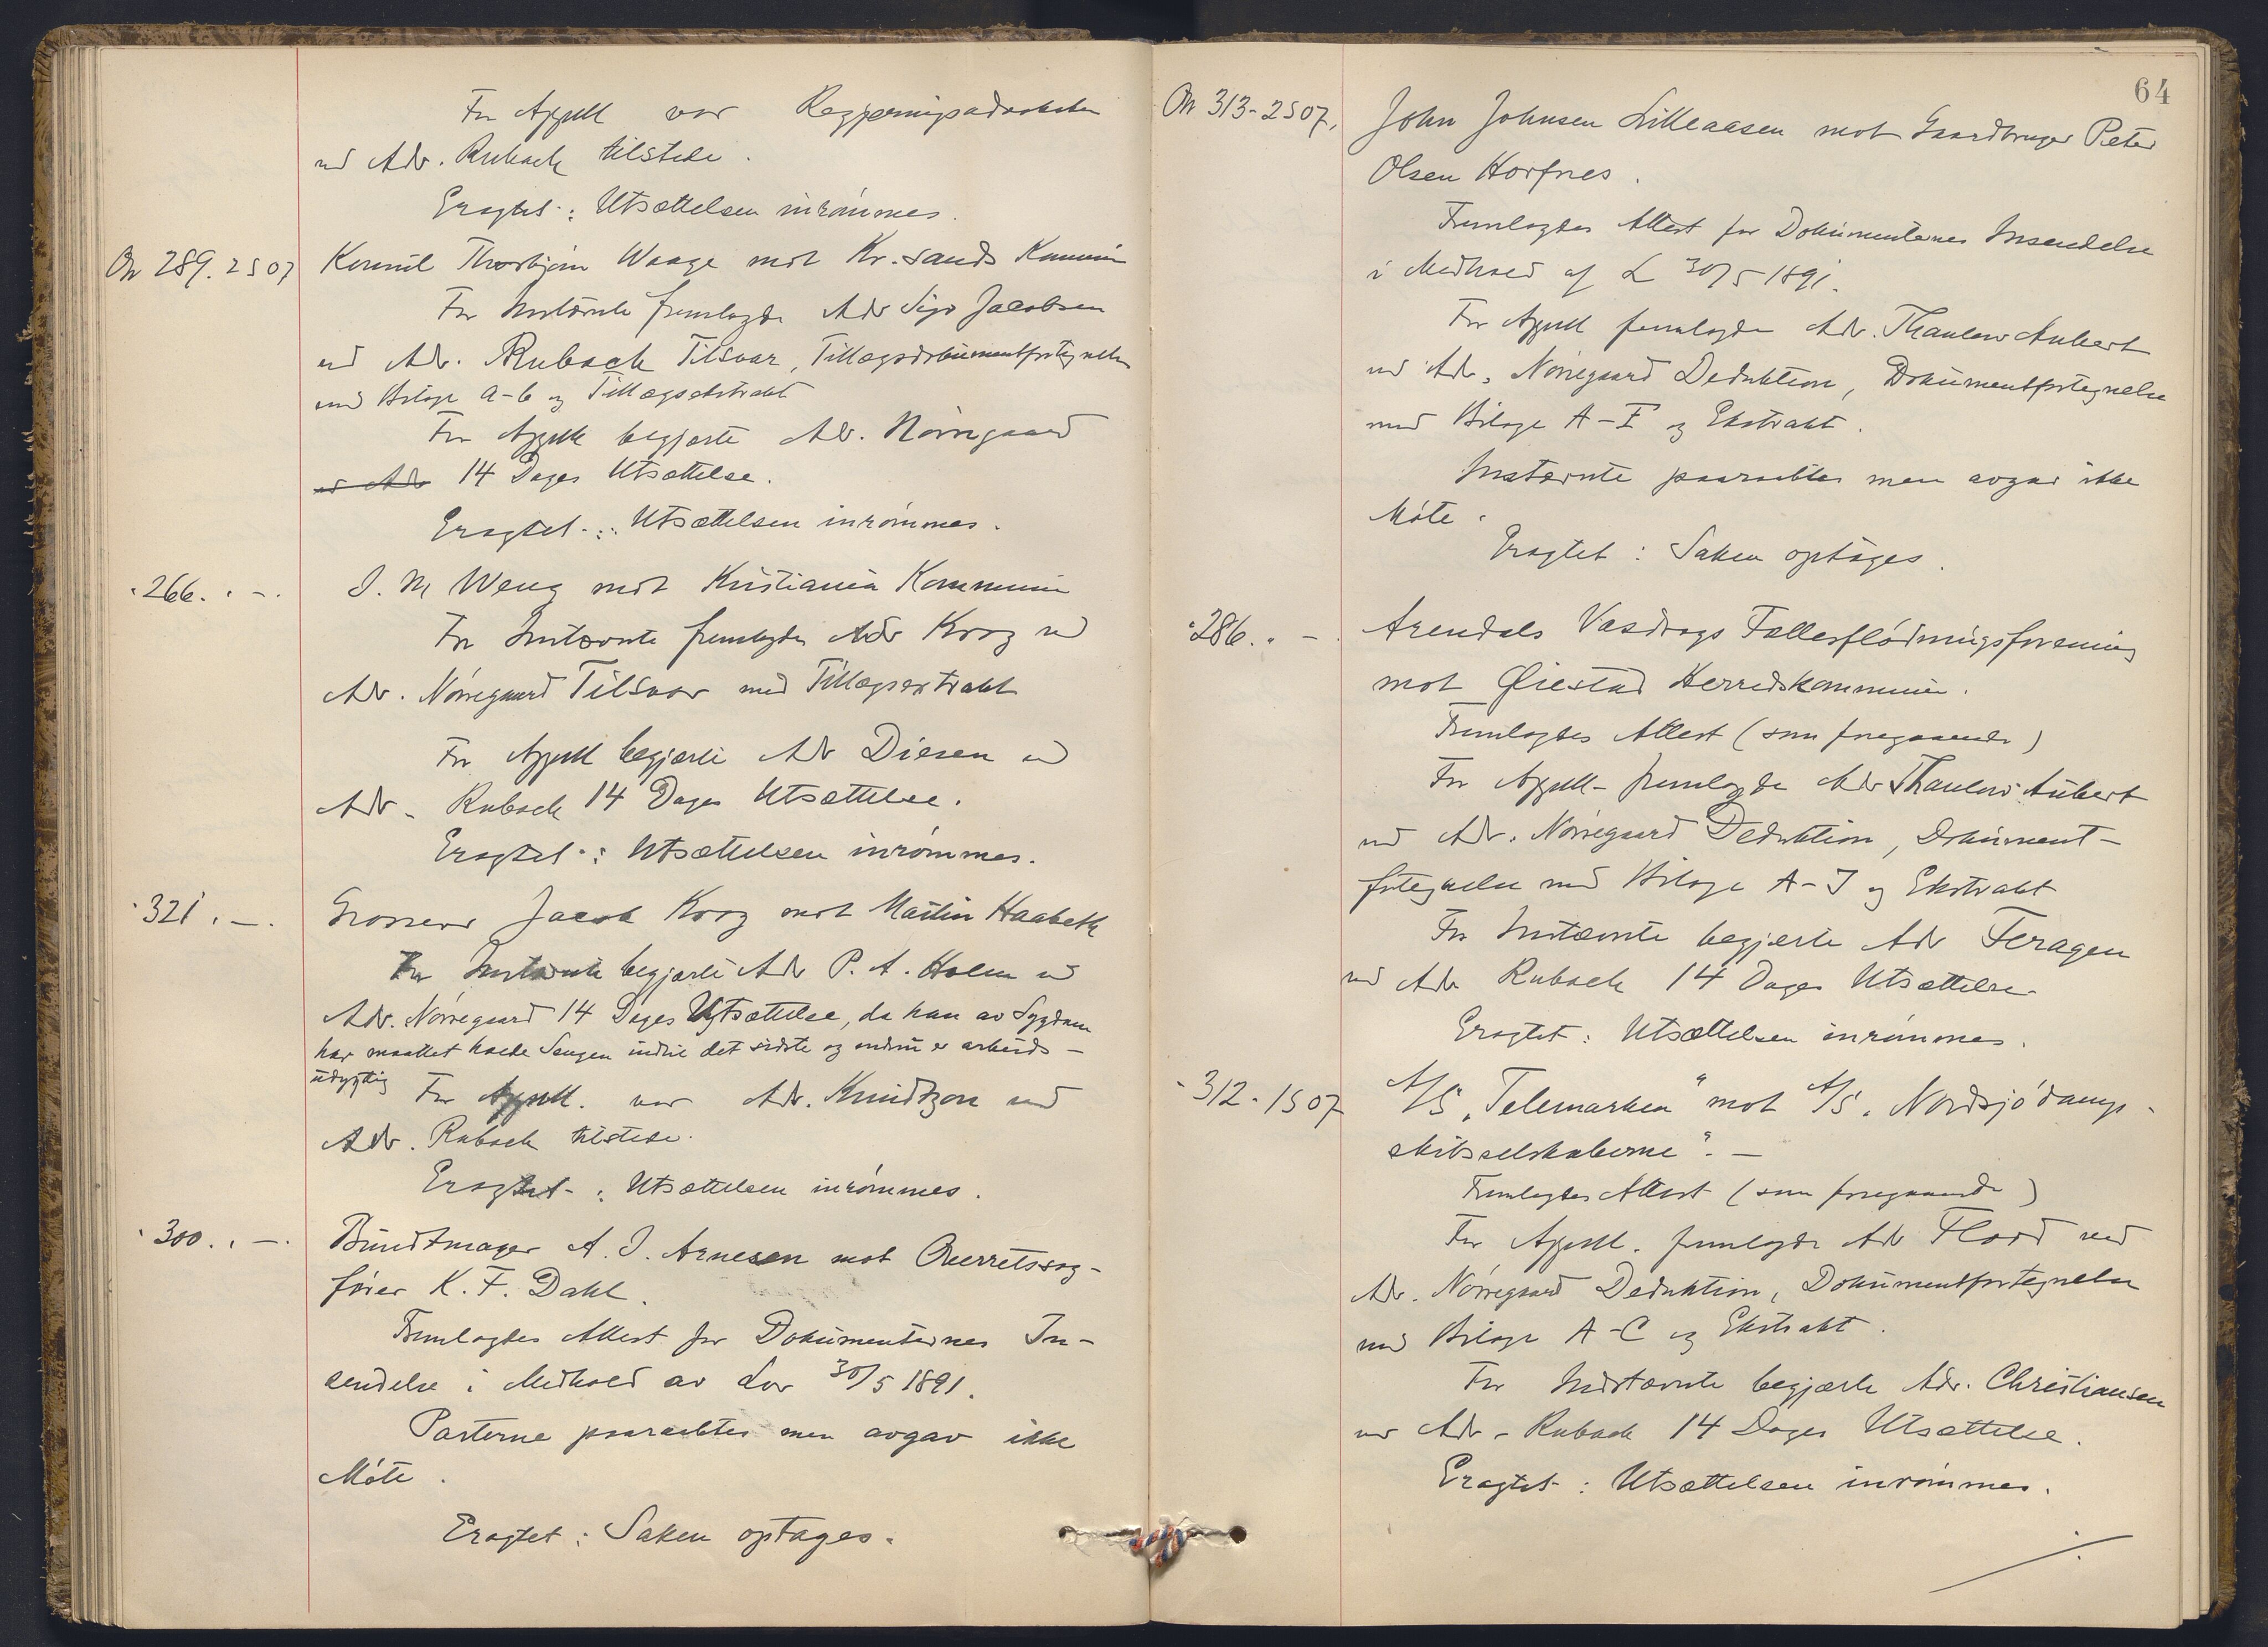 For Appell var Regjeringsadvokaten
ved Adv. Rubach tilstede.
Eragtet: Utsættelsen inrømmes.
No 289. 2S07 Konsul Thorbjørn Waage mot Kr.sands Kommune
For Instævnte fremlagde Adv Sigv Jacobsen
ved Adv. Rubach Tilsvar, Tillægsdokumentfortegnelse
med Bilage a-b og Tillægsekstrakt
For Appell begjærte Adv. Nørregaard
ved Adv 14 Dages Utsættelse.
Eragtet: Utsættelsen inrømmes.
"266. " - . J. M Weng mot Kristiania Kommune
For Instævnte fremlagde Adv Krog ved
Adv. Nørregaard Tilsvar med Tillægsextrakt
For Appell begjærte Adv Diesen ved
Adv. Rubach 14 Dages Utsættelse.
Eragtet: Utsættelsen inrømmes.
"321. - . Grosserer Jacob Krog mot Martin Haabeth
For Instævnte begjærte Adv P. A. Holm ved
Adv. Nørregaard 14 Dages Utsættelse, da han av Sygdom
har maattet holde Sengen indtil det sidste og endnu er arbeids-
udygtig
For Appell. var Adv. Knudtzon ved
Adv. Rubach tilstede.
Eragtet: Utsættelsen inrømmes.
"300. " - . Bundtmager A. J. Arnesen mot Overretssag-
fører K. F. Dahl.
Fremlagdes Attest for Dokumenternes In-
sendelse i Medhold av Lov 30/5 1891.
Parterne paaraabtes men avgav ikke
Møte.
Eragtet: Saken optages.
64
No 313-2S07. John Johnsen Lilleaasen mot Gaardbruger Peter
Olsen Horfnes.
Fremlagdes Attest for Dokumenternes Insendelse
i Medhold af L 30/5 1891.
For Appell fremlagde Adv. Thaulow Aubert
ved Adv. Nørregaard Deduktion, Dokumentfortegnelse
med Bilage A-E og Ekstrakt.
Instævnte paaraabtes men avgav ikke
Møte.
Eragtet: Saken optages.
"286. " - . Arendals Vasdrags Fællesflødningsforening
mot Øiestad Herredskommune.
Fremlagdes Attest (som foregaaende)
For Appell. fremlagde Adv Thaulow Aubert
ved Adv. Nørregaard Deduktion, Dokument-
fortegnelse med Bilage A-J og Ekstrakt
For Instævnte begjærte Adv Feragen
ved Adv Rubach 14 Dages Utsættelse
Eragtet: Utsættelsen inrømmes.
"312. 1S07 A/S "Telemarken" mot A/S "Nordsjødamp-
skibsselskaberne". -
Fremlagdes Attest (som foregaaende)
For Appell. fremlagde Adv Flood ved
Adv. Nørregaard Deduktion, Dokumentfortegnelse
med Bilage A-C og Ekstrakt.
For Indstævnte begjærte Adv. Christiansen
ved Adv. Rubach 14 Dages Utsættelse.
Eragtet: Utsættelsen inrømmes.